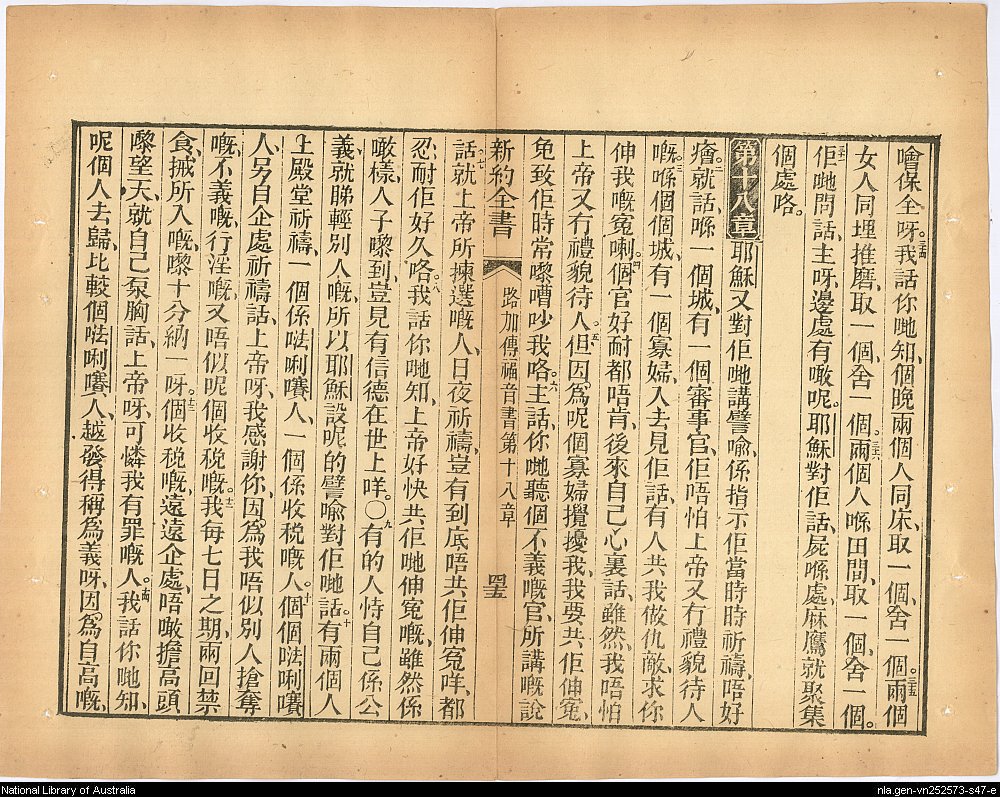 噲保全呀。三十四我話你哋知、個晚兩個人同床、取一個、舍一個。三十五兩個
女人同埋推磨、取一個、舍一個。三十六兩個人喺田間、取一個、舍一個。
三十七佢哋問話、主呀、邊處有噉呢。耶穌對佢話、屍喺處、麻鷹就聚集
個處咯。
第十八章 耶穌又對佢哋講譬喻、係指示佢當時時祈禱、唔好
癐。二就話、喺一個城、有一個審事官、佢唔怕上帝、又冇禮貌待人
嘅。三喺個個城、有一個寡婦、入去見佢話、有人共我做仇敵、求你
伸我嘅冤喇。四個官好耐都唔肯、後來自己心裏話、雖然我唔怕
上帝、又冇禮貌待人。五但因爲呢個寡婦攪擾我、我要共佢伸冤、
免致佢時常嚟嘈吵我咯。六主話、你哋聽個不義嘅官、所講嘅說
新約全書 路加傳福音書第十八章 四十五
話。七就上帝所揀選嘅人、日夜祈禱、豈有到底唔共佢伸冤咩、都
忍耐佢好久咯。八我話你哋知、上帝好快共佢哋伸冤嘅、雖然係
噉樣、人子嚟到、豈見有信德在世上咩。〇九有的人恃自己係公
義、就睇輕別人嘅、所以耶穌設呢的譬喻對佢哋話。十有兩個人
上殿堂祈禱、一個係㗶唎㘔人、一個係收稅嘅人。十一個個㗶唎㘔
人、另自企處祈禱話、上帝呀、我感謝你、因爲我唔似別人搶奪
嘅、不義嘅、行淫嘅、又唔似呢個收稅嘅。十二我每七日之期、兩回禁
食、摵所入嘅嚟十分納一呀。十三個收稅嘅、遠遠企處、唔噉擔高頭
嚟望天、就自己泵胸話、上帝呀、可憐我有罪嘅人。十四我話你哋知、
呢個人去歸、比較個㗶唎㘔人、越發得稱爲義呀、因爲自高嘅、
National Library of Australia
nla.gen-vn252573-s47-e